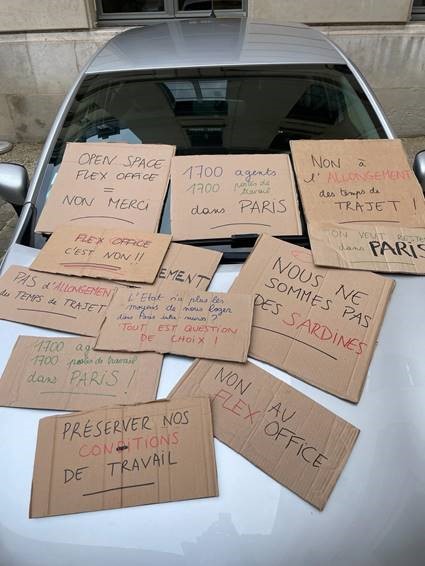 OPEN SPACE
FLEX OFFICE
=
NON MERCI
1700 agents
1700 postes de
travail
dans PARIS
NON à
l'ALLONGEMENT
des temps de
TRAJET !
ON VEUT RESTER
dans PARIS
FLEX OFFICE
C'EST NON !!
EMENT
PAS d'ALLONGEMENT
des TEMPS DE TRAJET
L'Etat n'a plus les
moyens de nous loger
dans Paris intra-muros ?
TOUT EST QUESTION
DE CHOIX !
NOUS NE
SOMMES PAS
DES SARDINES
1700 agents
1700 postes de travail
dans PARIS !
NON AU
FLEX
OFFICE
PRÉSERVER NOS
CONDITIONS
DE TRAVAIL